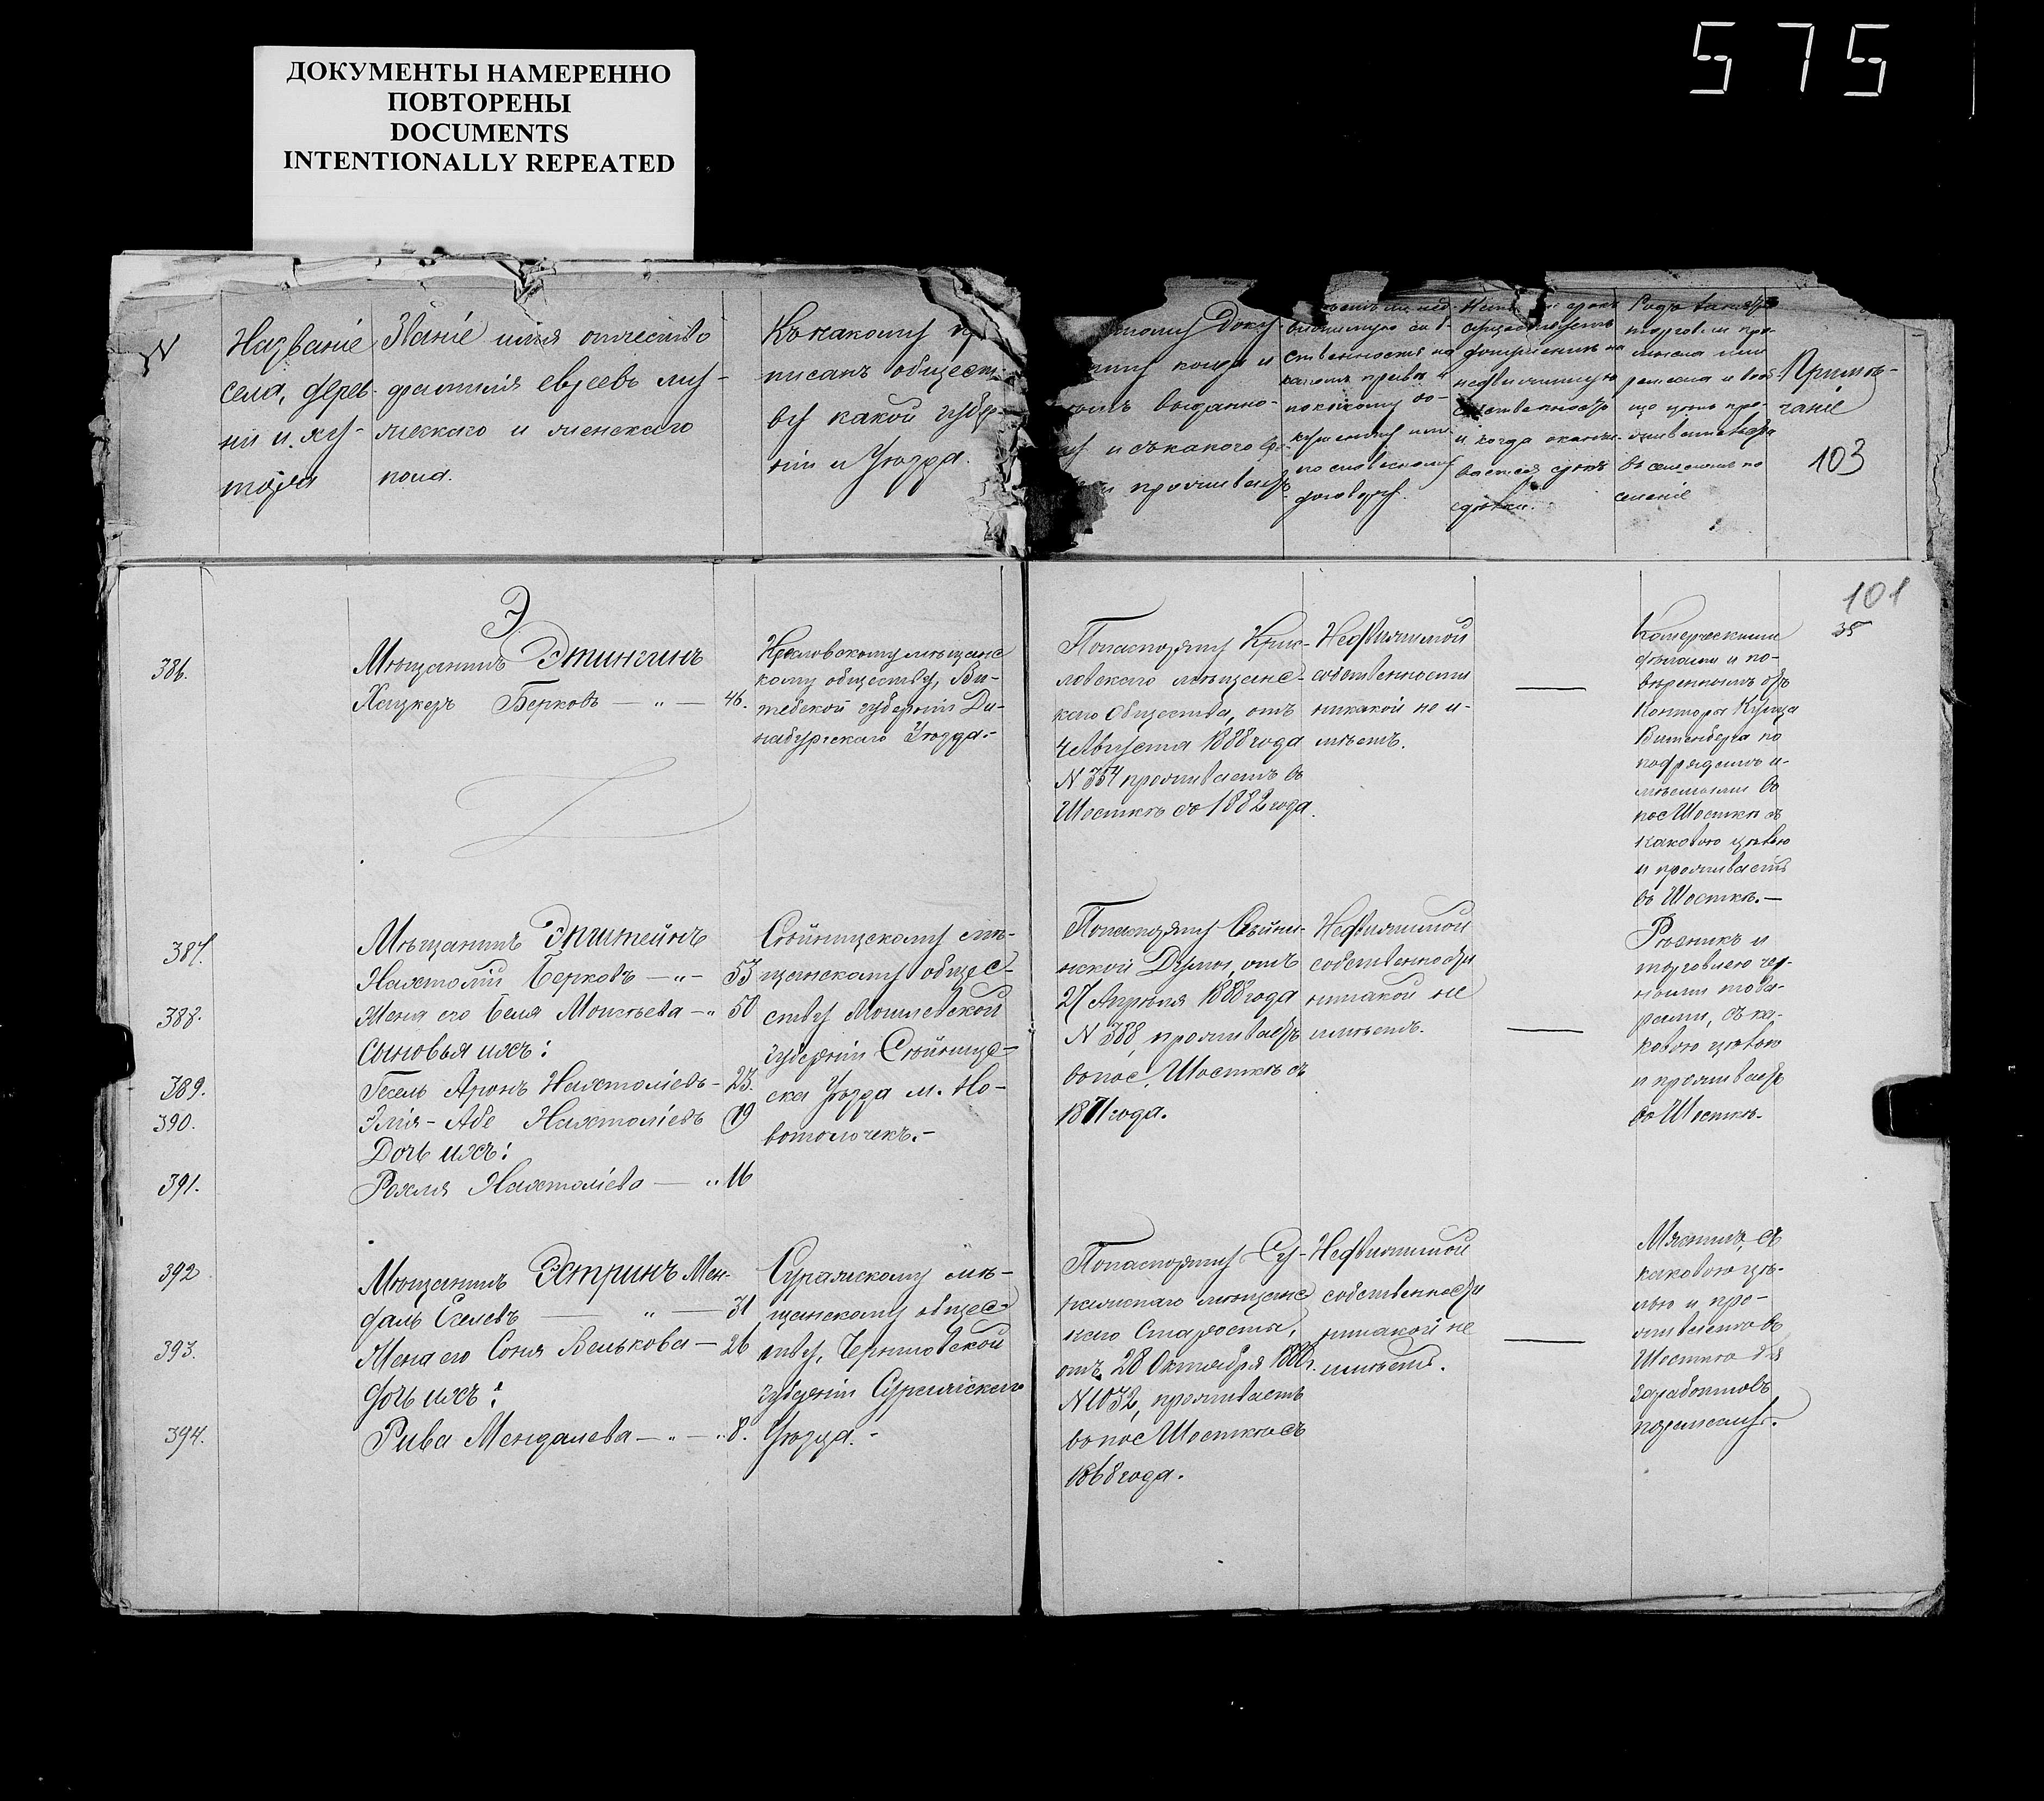 575
ДОКУМЕНТЫ НАМЕРЕННО
ПОВТОРЕНЫ
DOCUMENTS
INTENTIONALLY REPEATED
N
Названіе
села, дерев-
ни и ху-
тора
Званіе имя отчество
фамилія евреевъ муж-
жескаго и женскаго
пола.
Къ какому
писанъ общест-
ву какой губер-
ніи и Уѣзда.
Доку-
когда и
выданно-
и съ какого
проживаетъ
ственность на
какомъ праве и
по какому до-
кументу или
по словесному
договору.
недвижимую
и когда оканчи-
вается срокъ
сделки.
Родъ занятія
торговли про-
мысла или
ремесла и
цѣль про-
живательства
въ сельскомъ по
селеніе
Примѣ-
чаніе
103
101
35
Э.
386.
Мѣщанинъ Этингинъ
Хацкеръ Берковъ — „ — 46.
мѣщанс
кому обществу, Ви-
тебской губерніи Ди-
набургскаго Уѣзда.-
По паспорту
ловскаго мѣщанс-
каго Общества, отъ
4 Августа 1888 года
N 354 проживаетъ въ
Шосткѣ съ 1882 года.
Недвижимой
собственности
никакой не и-
мѣетъ.
—
Комерческими
дѣлами и по-
вѣреннымъ отъ
Конторы Купца
Витенберга по
подрядамъ и-
мѣемыми въ
пос Шосткѣ съ
каковою цѣлью
и проживаетъ
въ Шосткѣ.—
387.
Мѣщанинъ Эпштейнъ
Нахтолій Берковъ — „ — 53
388.
Жена его Беля Моисѣева — „ 50
Сыновья ихъ:
389.
Гесель Аронъ Нахтоліевъ — 23.
390.
Элія-Абе Нахтоліевъ 19
Дочь ихъ:
391.
Рохля Нахтоліева — „ 16
Сѣйнницскому мѣ-
щанскому общес-
тву Могилевской
губерніи
ска Уѣзда м. Но-
вотолочекъ.-
По паспорту
нской Думы, отъ
27 Апрѣля 1888 года
N 388, проживаетъ
въ пос. Шосткѣ съ
1871 года.
Недвижимой
собственности
никакой не
имѣетъ.
—
Рѣзникъ и
торговлею чер-
ными това-
рами, съ ка-
ковою цѣлью
и проживаетъ
въ Шосткѣ.
392
Мѣщанинъ Эстринъ Мен-
даль Евсеевъ — „ — 31
393.
Жена его Соня Велькова — 26
дочь ихъ:
394.
Рива Мендалева — „ — „ 8.
Суражскому мѣ-
щанскому общес-
тву, Черниговской
губерніи Суражскаго
Уѣзда.-
По паспорту Су-
ражскаго мѣщанс
каго Старосты,
отъ 28 Октября 1888 г.
N 1032, проживаетъ
въ пос Шосткѣ съ
1868 года.
Недвижимой
собственности
никакой не
имѣетъ.
—
съ
каковою цѣ-
лью и про-
живаетъ въ
Шостки для
заработковъ